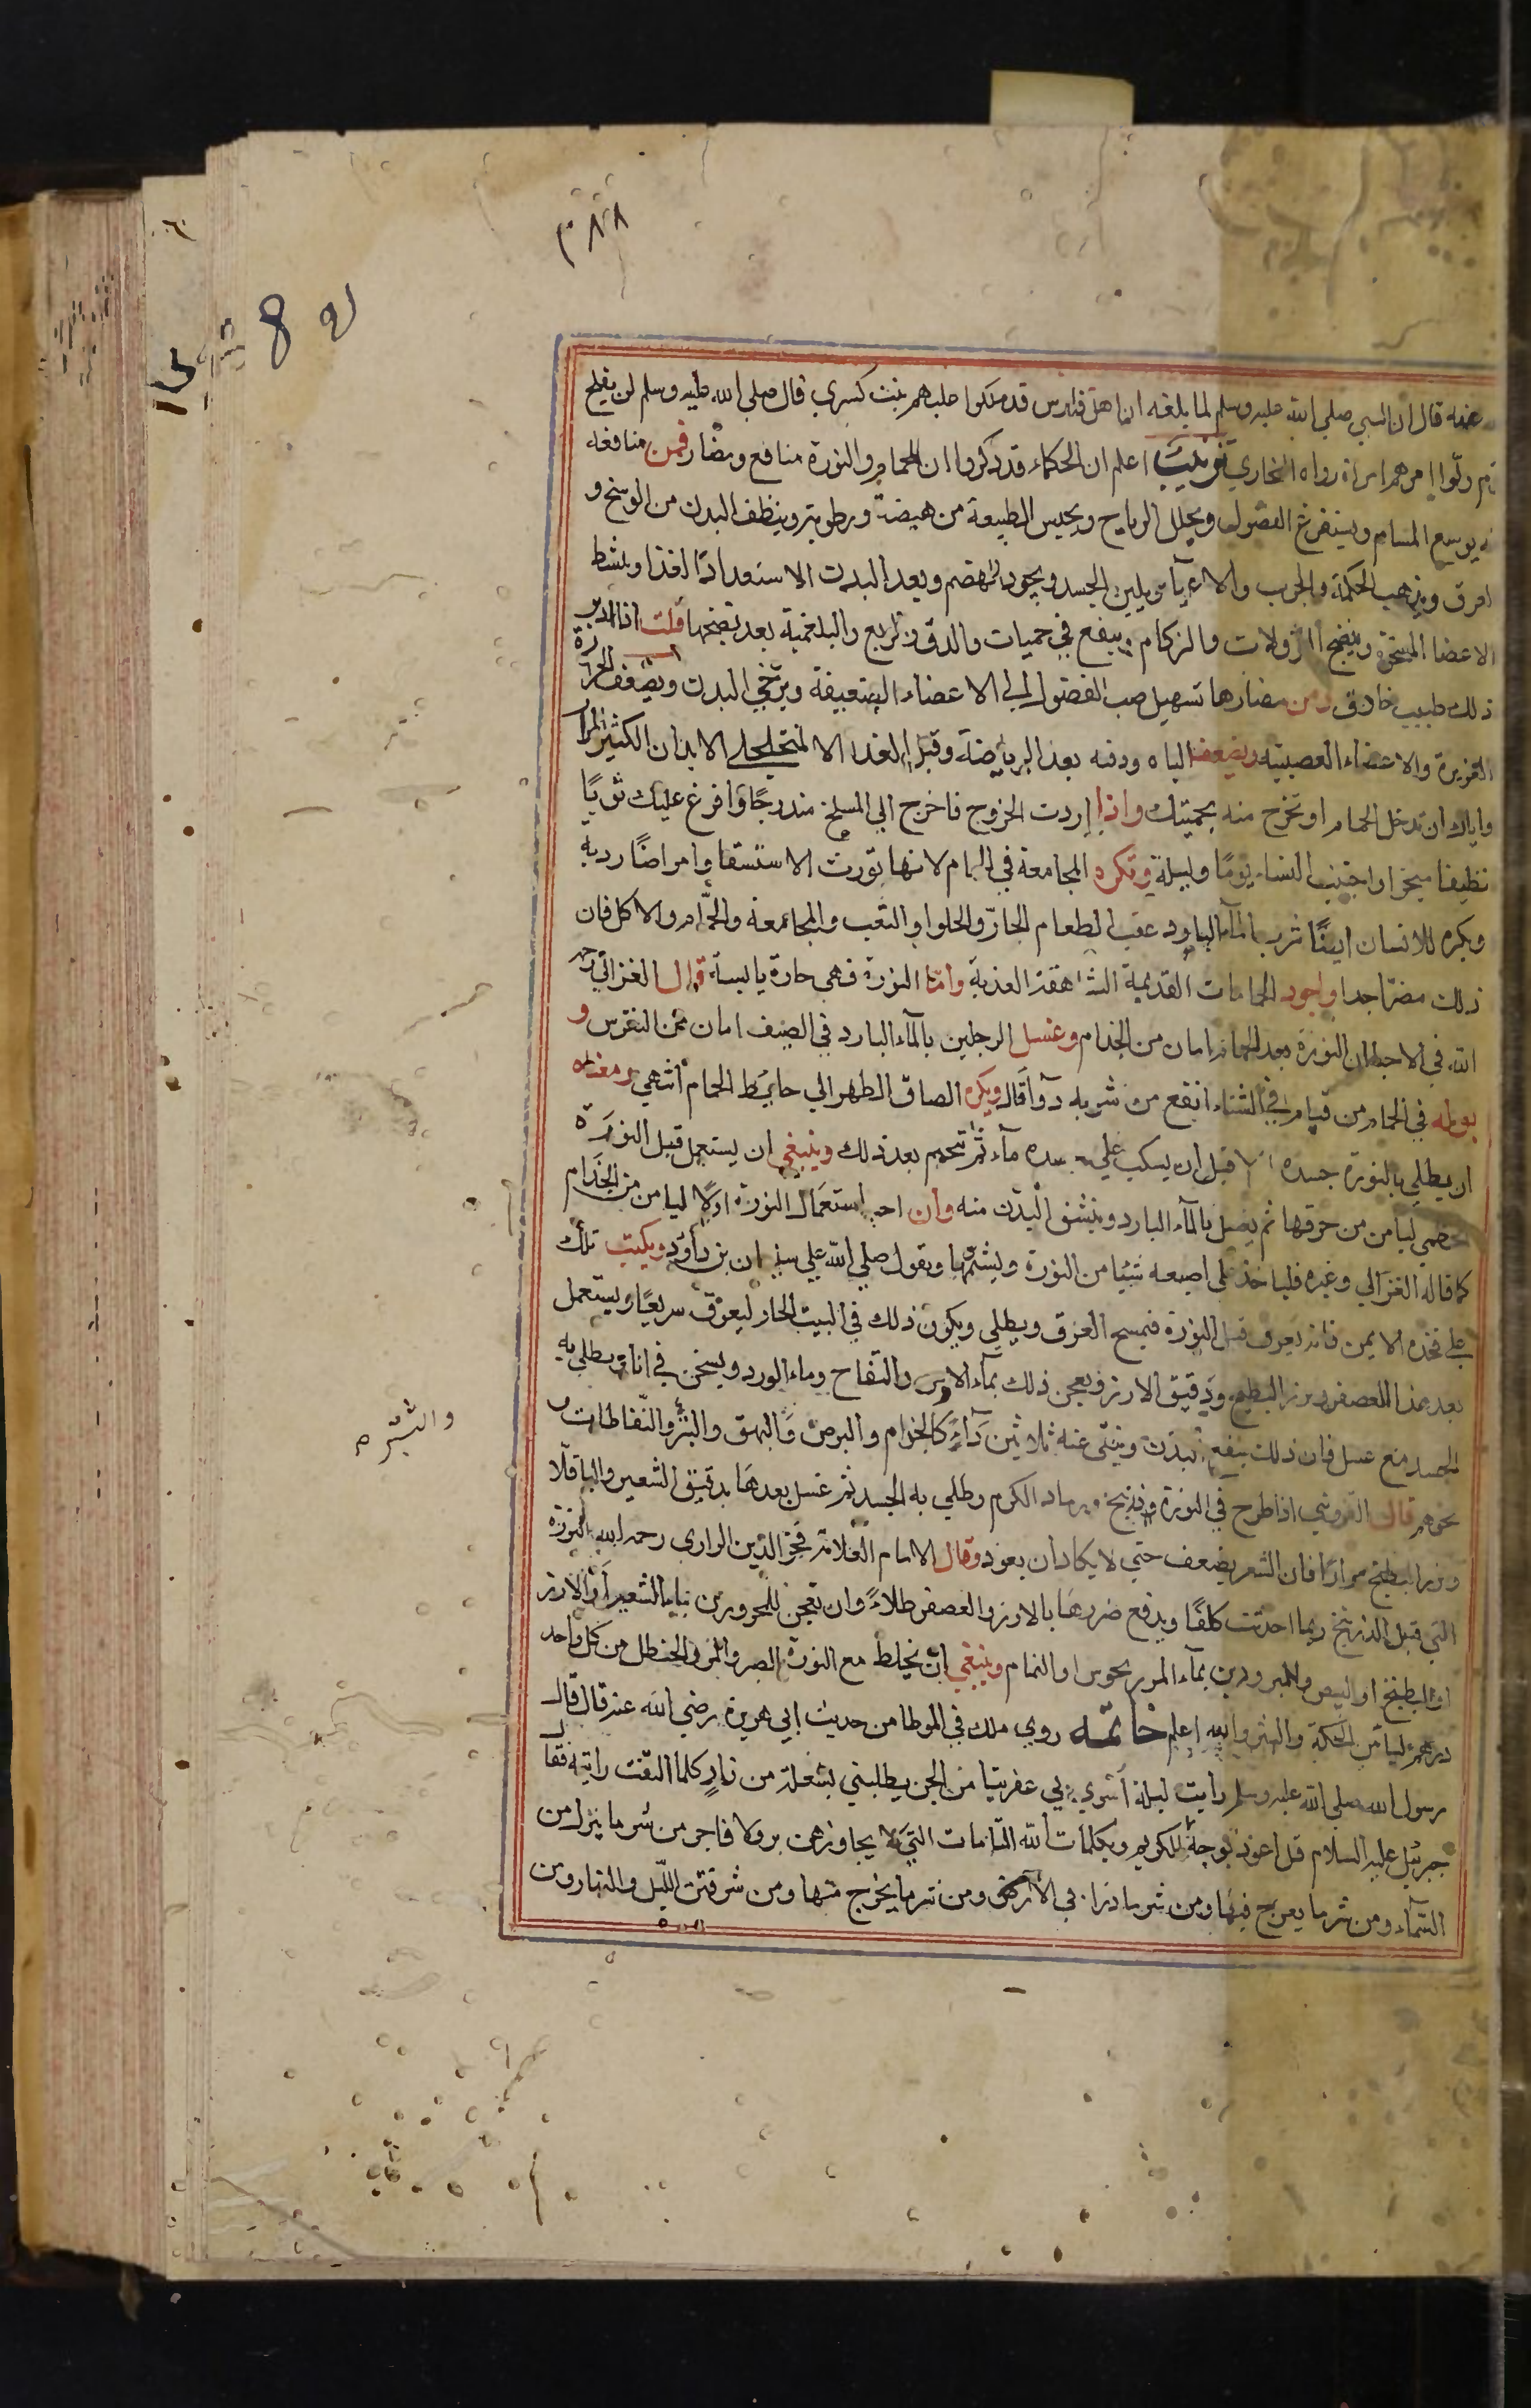 ٣٨٨
عنه قال ان النبي صلي الله عليه وسلم لما بلغه ان اهل فارس قد ملكوا عليهم بنت كسري قال صلي الله عليه وسلم لن يفلح
ولّوا امرهم امراة رواه البخاري اعلم ان الحكماء قد ذكروا ان للحمام والنورة منافع ومضار فمن منافعه
يوسع المسام ويستفرغ الفضول ويحلل الرياح ويحبس الطبيعة من هيضة ورطوبة وينظف البدن من الوسخ و
العرق ويذهب الحكة والجرب والاعيآ ويلين الجسد ويجود الهضم ويعد البدن الاستعدادًا لغذا وينشط
الاعضا المتشنجة وينضج النزولات والزكام وينفع في حميات والدق والربع والبلغمية بعد نضجها قلت اذا دبر
ذلك طبيب حاذق ومن مضارها تسهيل صب الفضول الي الاعضاء الضعيفة ويرخي البدن ويضعف الحرارة
الغزيرة والاعضاء العصبية ويضعف الباه ووقته بعد الرياضة وقبل الغدا الا لمتخلخلي الابدان الكثيري المرار
واياك ان تدخل الحمام او تخرج منه بحميتك واذا اردت الخروج فاخرج الي المسلخ متدرجًا وافرغ عليك ثوبًا
نظيفا مبخرا واجتنب النساء يومًا وليلة وتكره المجامعة في الحمام لانها تورث الاستسقا وامراضًا ردية
ويكره للانسان ايضًا شرب المآء البارد عقب الطعام الحارّ والحلوا والتعب والمجامعة والحمّام والاكل فان
ذلك مضرّ جدا واجود الحمامات القديمة الشاهقة العذبة وامّا النورة فهي حارة يابسة قال الغزالي رحمه
الله في الاحيا ان النورة بعد الحمام امان من الجذام وغسل الرجلين بالمآء البارد في الصيف امان من النقرس و
بولة في الحمام من قيام في الشتاء انفع من شربه دوآ قال ويكره الصاق الظهر الي حايط الحمام انتهي ومعناه
ان يطلي بالنورة جسده قبل ان يسكب علي جسده مآء ثم تتحمم بعد ذلك وينبغي ان يستعمل قبل النورة
الخطمي ليامن من حرقها ثم يغسل بالمآء البارد وينشف البدن منه وان احب استعمال النورة اوّلا ليامن من الجذام
كما قاله الغزالي وغيره فلياخذ علي اصبعه شيئا من النورة ويشمّها ويقول صلي الله علي سليمان بن داود ويكتب تلك
علي فخذه الايمن فانه يعرق قبل النورة فيمسح العرق ويطلي ويكون ذلك في البيت الحار ليعرق سريعًا ويستعمل
بعد هذا العصفر وبزر البطيخ ودقيق الارز ويعجن ذلك بمآء الاس والتفاح وماء الورد ويسخن في اناء يطلي به
الجسد مع عسل فان ذلك ينفع البدن وينقي عنه ثلاثين دآء كالجذام والبرص والبهق والبثر والنفاطات و
نحوهم قال القزويني اذا طرح في النورة زرنيخ ورماد الكرم وطلي به الجسد ثم غسل بعدها بدقيق الشعير والباقلّا
وبزر البطيخ مرارًا فان الشعر يضعف حتي لا يكاد ان يعود وقال الامام العلامة فخر الدين الرازي رحمه الله النورة
التي قبل الزرنيخ ربما احدثت كلفًا ويدفع ضررها بالارز والعصفر طلاءً وان تعجن للمحرورين بماء الشعير او الارز
او البطيخ او البيض وللمبرودين بمآء المرزنجوس او النمام وينبغي ان يخلط مع النورة الصبر والمر والحنظل من كل واحد
درهم ليامن الحكة والبثر والله اعلم خاتمه روي ملك في الموطا من حديث ابي هريرة رضي الله عنه قال قال
رسول الله صلي الله عليه وسلم رايت ليلة اسري بي عفريتا من الجن يطلبني بشعلة من نار كلما التفت رايته فقال
جبرئيل عليه السلام قل اعوذ بوجه الله الكريم وبكلمات الله التامات التي لا يجاوزهن بر ولا فاجر من شر ما ينزل من
السّمآء ومن شر ما يعرج فيها ومن شر ما ذرا في الارض ومن شر ما يخرج منها ومن شر فتن الليل والنهار ومن
والبثر